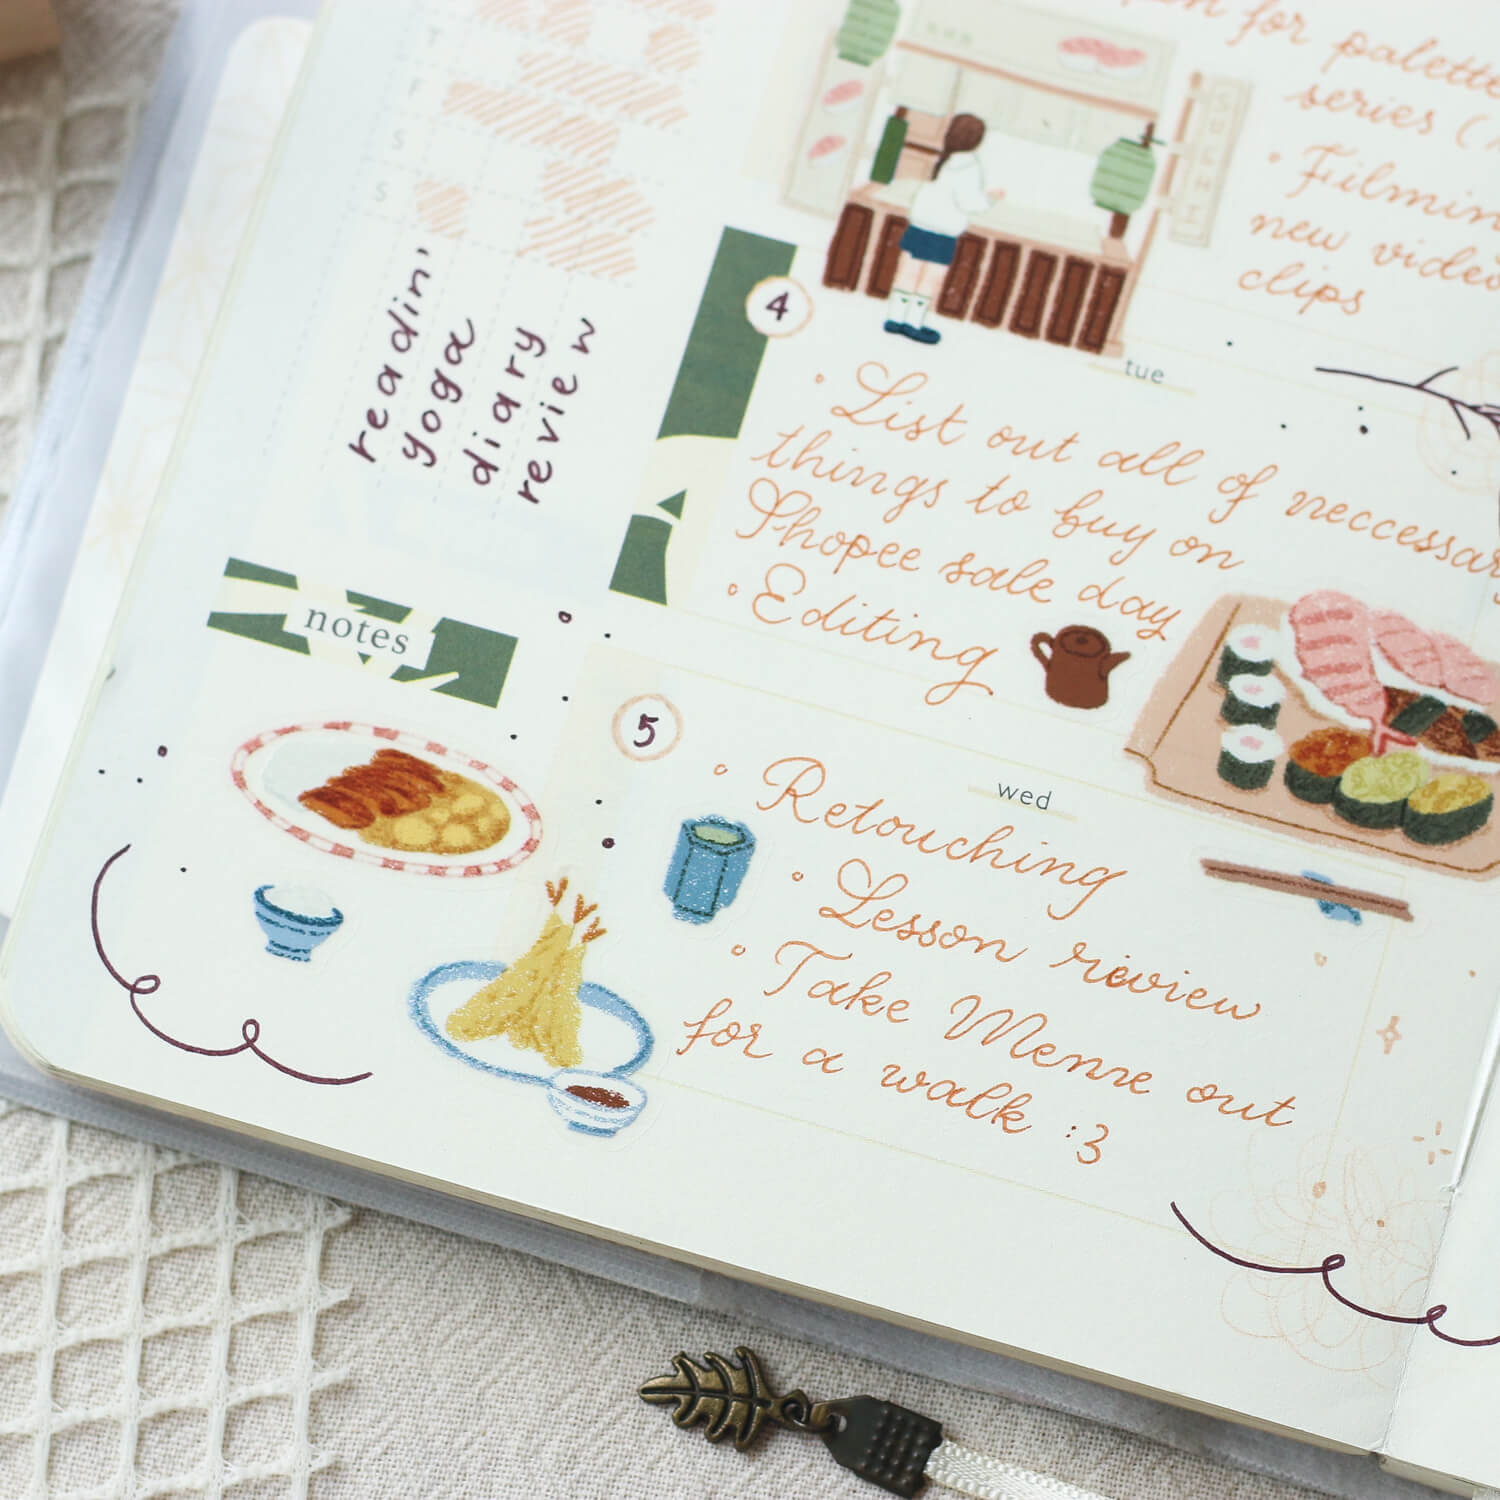 for palette
series (
• Filming
new video
clips
SUSHI
T
F
S
S
readin'
yoga
diary
review
4
tue
• List out all of neccessary
things to buy on
Shopee sale day
• Editing
notes
5
wed
• Retouching
• Lesson riview
• Take Menne out
for a walk :3